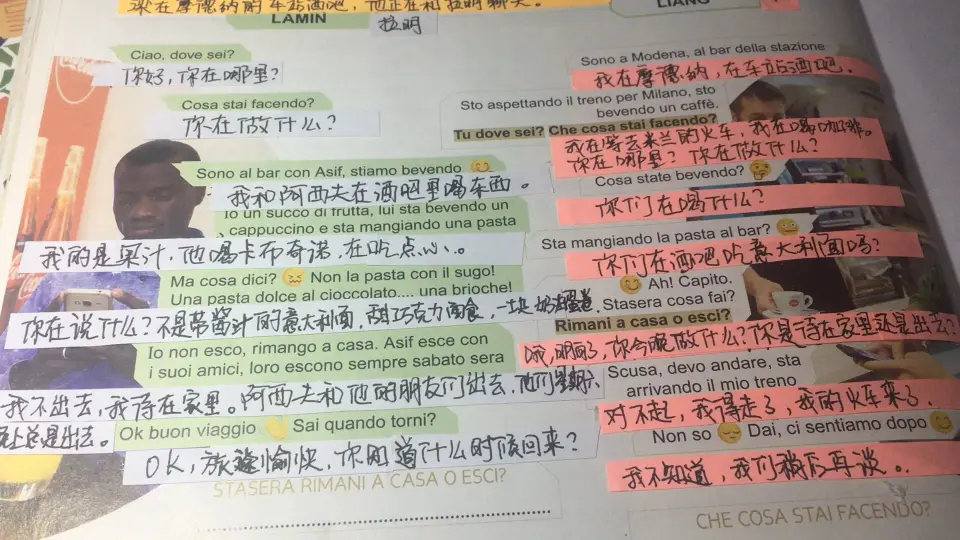 梁在摩德纳的车站酒吧，他正在和拉明聊天。
LAMIN
LIANG
拉明
Ciao, dove sei?
你好，你在哪里？
Sono a Modena, al bar della stazione
我在摩德纳，在车站酒吧。
Cosa stai facendo?
你在做什么？
Sto aspettando il treno per Milano, sto
bevendo un caffè.
Tu dove sei? Che cosa stai facendo?
我在等去米兰的火车，我在喝咖啡。
你在哪里？你在做什么？
Sono al bar con Asif, stiamo bevendo
我和阿西夫在酒吧里喝东西。
Cosa state bevendo?
你们在喝什么？
Io un succo di frutta, lui sta bevendo un
cappuccino e sta mangiando una pasta
我的是果汁，他喝卡布奇诺，在吃点心。
Sta mangiando la pasta al bar?
你们在酒吧吃意大利面吗？
Ma cosa dici? Non la pasta con il sugo!
Una pasta dolce al cioccolato.... una brioche!
你在说什么？不是带酱汁的意大利面，甜巧克力面食，一块奶油蛋糕
Ah! Capito.
Stasera cosa fai?
Rimani a casa o esci?
哦，明白了，你今晚做什么？你是待在家里还是出去？
Io non esco, rimango a casa. Asif esce con
i suoi amici, loro escono sempre sabato sera
我不出去，我待在家里。阿西夫和他的朋友们出去，他们星期六
晚上总是出去。
Scusa, devo andare, sta
arrivando il mio treno
对不起，我得走了，我的火车来了。
Ok buon viaggio Sai quando torni?
OK，旅途愉快，你知道什么时候回来？
Non so Dai, ci sentiamo dopo
我不知道，我们稍后再谈。
STASERA RIMANI A CASA O ESCI?
CHE COSA STAI FACENDO?